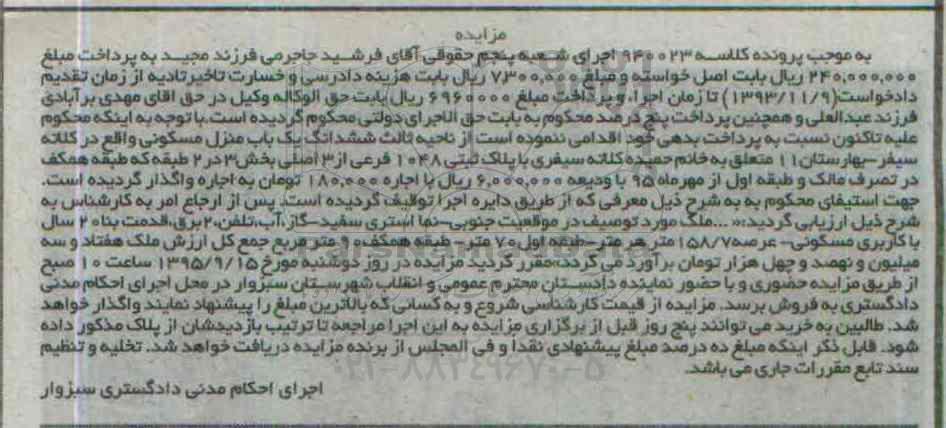 مزایده
به موجب پرونده کلاسه ۹۴۰۰۲۳ اجرای شعبه پنجم حقوقی آقای فرشید حاجرمی فرزند مجید به پرداخت مبلغ
۲۴۰,۰۰۰,۰۰۰ ریال بابت اصل خواسته و مبلغ ۷۳۰۰,۰۰۰ ریال بابت هزینه دادرسی و خسارت تاخیر تادیه از زمان تقدیم
دادخواست(۱۳۹۳/۱۱/۹) تا زمان اجراء و پرداخت مبلغ ۶۹۶۰۰۰۰ ریال بابت حق الوکاله وکیل در حق آقای مهدی برآبادی
فرزند عبدالعلی و همچنین پرداخت پنج درصد محکوم به بابت حق الاجرای دولتی محکوم گردیده است. با توجه به اینکه محکوم
علیه تاکنون نسبت به پرداخت بدهی خود اقدامی ننموده است از ناحیه ثالث ششدانگ یک باب منزل مسکونی واقع در کلاته
سیفر-بهارستان۱۱ متعلق به خانم حمیده کلاته سیفری با پلاک ثبتی ۱۰۴۸ فرعی از۳ اصلی بخش۳ در ۲ طبقه که طبقه همکف
در تصرف مالک و طبقه اول از مهرماه ۹۵ با ودیعه ۶,۰۰۰,۰۰۰ ریال با اجاره ۱۸۰,۰۰۰ تومان به اجاره واگذار گردیده است.
جهت استیفای محکوم به به شرح ذیل معرفی که از طریق دایره اجرا توقیف گردیده است. پس از ارجاع امر به کارشناس به
شرح ذیل ارزیابی گردید:«...ملک مورد توصیف در موقعیت جنوبی-نما آستری سفید-گاز،آب،تلفن،۲برق،قدمت بنا۲۰ سال
با کاربری مسکونی- عرصه۱۵۸/۷ متر هر متر-طبقه اول۷۰ متر- طبقه همکف۹۰ متر مربع جمع کل ارزش ملک هفتاد و سه
میلیون و نهصد و چهل هزار تومان برآورد می گردد»مقرر گردید مزایده در روز دوشنبه مورخ ۱۳۹۵/۹/۱۵ ساعت ۱۰ صبح
از طریق مزایده حضوری و با حضور نماینده دادستان محترم عمومی و انقلاب شهرستان سبزوار در محل اجرای احکام مدنی
دادگستری به فروش برسد. مزایده از قیمت کارشناسی شروع و به کسانی که بالاترین مبلغ را پیشنهاد نمایند واگذار خواهد
شد. طالبین به خرید می توانند پنج روز قبل از برگزاری مزایده به این اجرا مراجعه تا ترتیب بازدیدشان از پلاک مذکور داده
شود. قابل ذکر اینکه مبلغ ده درصد مبلغ پیشنهادی نقدا و فی المجلس از برنده مزایده دریافت خواهد شد. تخلیه و تنظیم
سند تابع مقررات جاری می باشد.
اجرای احکام مدنی دادگستری سبزوار
۰۲۱-۸۸۳۴۹۶۷۰-۵